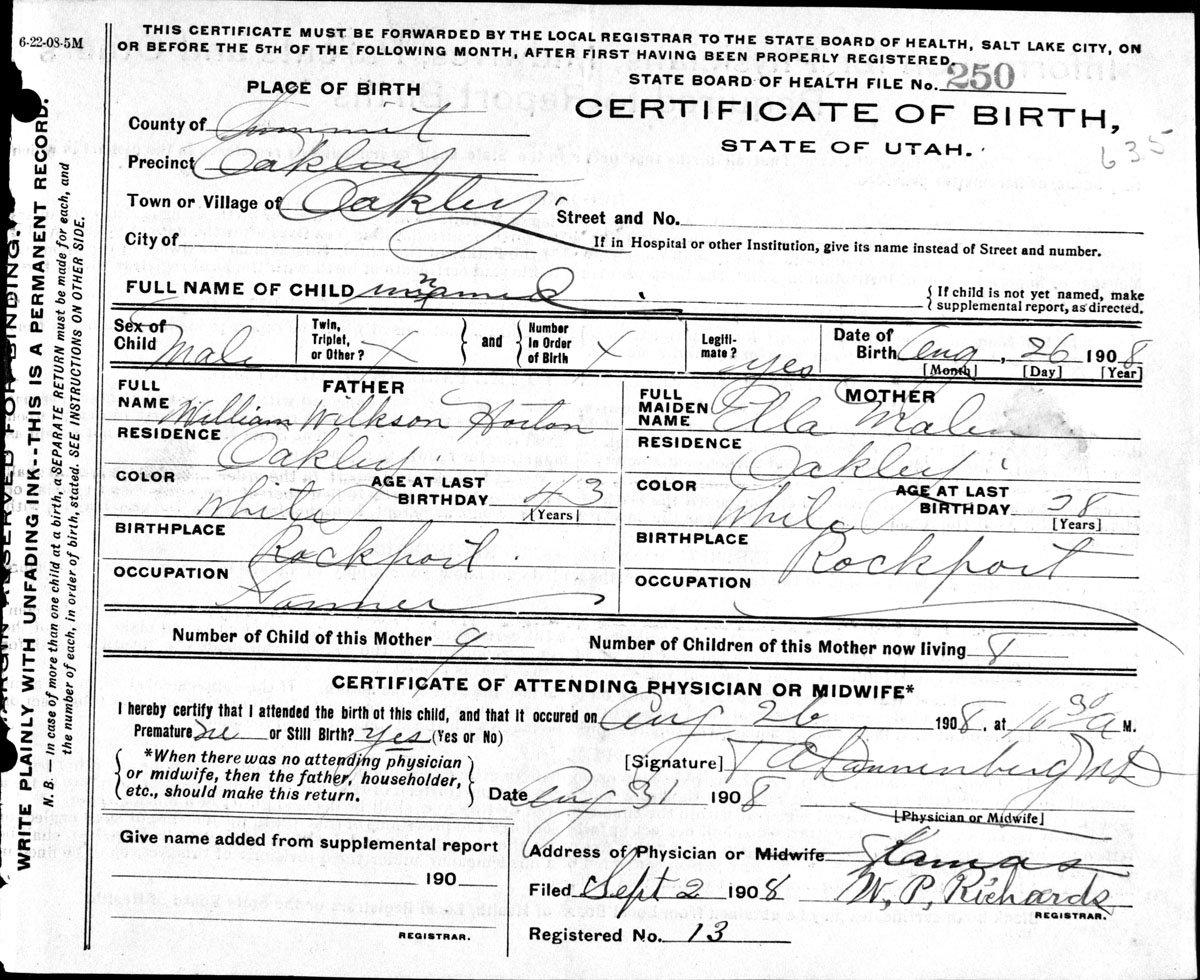 6-22-08-5M
THIS CERTIFICATE MUST BE FORWARDED BY THE LOCAL REGISTRAR TO THE STATE BOARD OF HEALTH, SALT LAKE CITY, ON
OR BEFORE THE 5TH OF THE FOLLOWING MONTH, AFTER FIRST HAVING BEEN PROPERLY REGISTERED.
STATE BOARD OF HEALTH FILE No. 250
PLACE OF BIRTH
CERTIFICATE OF BIRTH,
STATE OF UTAH.
635
County of Summit
Precinct Oakley
Town or Village of Oakley
Street and No.
City of
If in Hospital or other Institution, give its name instead of Street and number.
FULL NAME OF CHILD unnamed
{ If child is not yet named, make
supplemental report, as directed.
Sex of Child Male
Twin, Triplet, or Other? X } and { Number in Order of Birth X
Legiti-mate? yes
Date of Birth Aug, 26 1908
[Month] [Day] [Year]
FATHER
FULL NAME William Wilkson Horton
RESIDENCE Oakley
COLOR White
AGE AT LAST BIRTHDAY 43
[Years]
BIRTHPLACE Rockport
OCCUPATION Farmer
MOTHER
FULL MAIDEN NAME Ella Malin
RESIDENCE Oakley
COLOR White
AGE AT LAST BIRTHDAY 38
[Years]
BIRTHPLACE Rockport
OCCUPATION
Number of Child of this Mother 9
Number of Children of this Mother now living 8
CERTIFICATE OF ATTENDING PHYSICIAN OR MIDWIFE*
I hereby certify that I attended the birth of this child, and that it occured on Aug 26 1908, at 30 A M.
Premature or Still Birth? yes (Yes or No)
{ *When there was no attending physician
or midwife, then the father, householder,
etc., should make this return. }
[Signature] MD
Date Aug 31 1908
[Physician or Midwife]
Give name added from supplemental report
190
REGISTRAR.
Address of Physician or Midwife Kamas
Filed Sept 2 1908 W. P. Richards
REGISTRAR.
Registered No. 13
MARGIN RESERVED FOR BINDING.
WRITE PLAINLY WITH UNFADING INK--THIS IS A PERMANENT RECORD.
N. B. — In case of more than one child at a birth, a SEPARATE RETURN must be made for each, and
the number of each, in order of birth, stated. SEE INSTRUCTIONS ON OTHER SIDE.